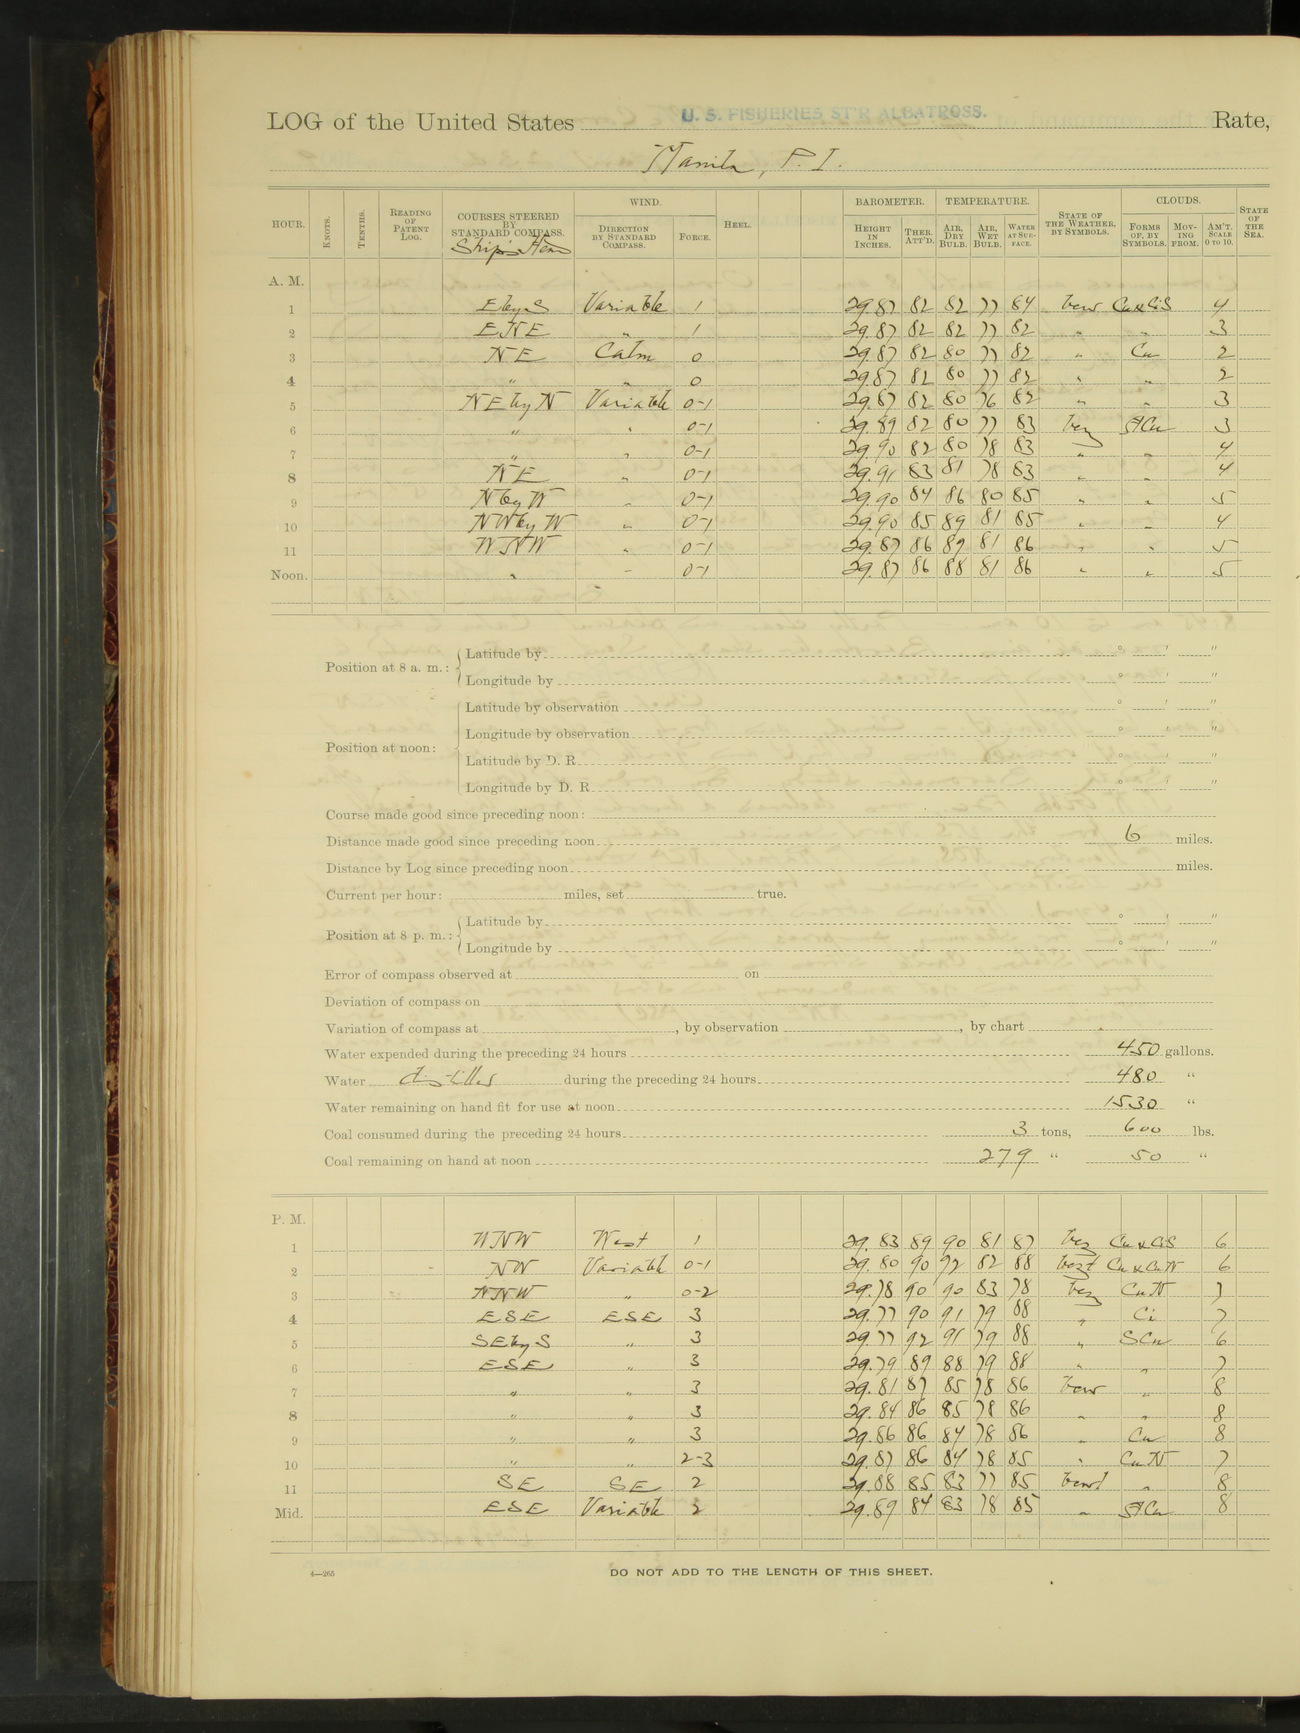 LOG of the United States U. S. FISHERIES ST'R ALBATROSS. Rate,
Manila, P. I.
HOUR. KNOTS. TENTHS. READING OF PATENT LOG. COURSES STEERED BY STANDARD COMPASS. WIND. DIRECTION BY STANDARD COMPASS. FORCE. HEEL. BAROMETER. HEIGHT IN INCHES. THER. ATT'D. TEMPERATURE. AIR, DRY BULB. AIR, WET BULB. WATER AT SURFACE. STATE OF THE WEATHER, BY SYMBOLS. CLOUDS. FORMS OF, BY SYMBOLS. MOVING FROM. AM'T. SCALE 0 TO 10. STATE OF THE SEA.
Ship's Head
A. M.
1 E by S Variable 1 29.87 82 82 77 84 bcw Cu & CiS 4
2 ENE " 1 29.87 82 82 77 82 " " 3
3 NE Calm 0 29.87 82 80 77 82 " Cu 2
4 " " 0 29.87 82 80 77 82 " " 2
5 NE by N Variable 0-1 29.87 82 80 76 82 " " 3
6 " " 0-1 29.89 82 80 77 83 bcz StCu 3
7 " " 0-1 29.90 82 80 78 83 " " 4
8 NE " 0-1 29.91 83 81 78 83 " " 4
9 N by W " 0-1 29.90 84 86 80 85 " " 5
10 NW by W " 0-1 29.90 85 89 81 85 " " 4
11 WNW " 0-1 29.87 86 89 81 86 " " 5
Noon. " " 0-1 29.87 86 88 81 86 " " 5
Position at 8 a. m.: Latitude by ° ' "
Longitude by ° ' "
Position at noon: Latitude by observation ° ' "
Longitude by observation ° ' "
Latitude by D. R. ° ' "
Longitude by D. R. ° ' "
Course made good since preceding noon:
Distance made good since preceding noon 6 miles.
Distance by Log since preceding noon miles.
Current per hour: miles, set true.
Position at 8 p. m.: Latitude by ° ' "
Longitude by ° ' "
Error of compass observed at on
Deviation of compass on
Variation of compass at , by observation , by chart
Water expended during the preceding 24 hours 450 gallons.
Water distilled during the preceding 24 hours 480 "
Water remaining on hand fit for use at noon 1530 "
Coal consumed during the preceding 24 hours 3 tons, 600 lbs.
Coal remaining on hand at noon 279 " 50 "
P. M.
1 WNW West 1 29.83 89 90 81 87 bcz Cu & CiS 6
2 NW Variable 0-1 29.80 90 92 82 88 Cu & CuN 6
3 NNW " 0-2 29.78 90 90 83 78 bcz CuN 7
4 ESE ESE 3 29.77 90 91 79 88 " Ci 7
5 SE by S " 3 29.77 92 91 79 88 " SCu 6
6 ESE " 3 29.79 89 88 79 88 " " 7
7 " " 3 29.81 87 85 78 86 bcw " 8
8 " " 3 29.84 86 85 78 86 " " 8
9 " " 3 29.86 86 84 78 86 " Cu 8
10 " " 2-3 29.87 86 84 78 85 " CuN 7
11 SE SE 2 29.88 85 83 77 85 bcwl " 8
Mid. ESE Variable 2 29.89 84 83 78 85 " StCu 8
4—265
DO NOT ADD TO THE LENGTH OF THIS SHEET.